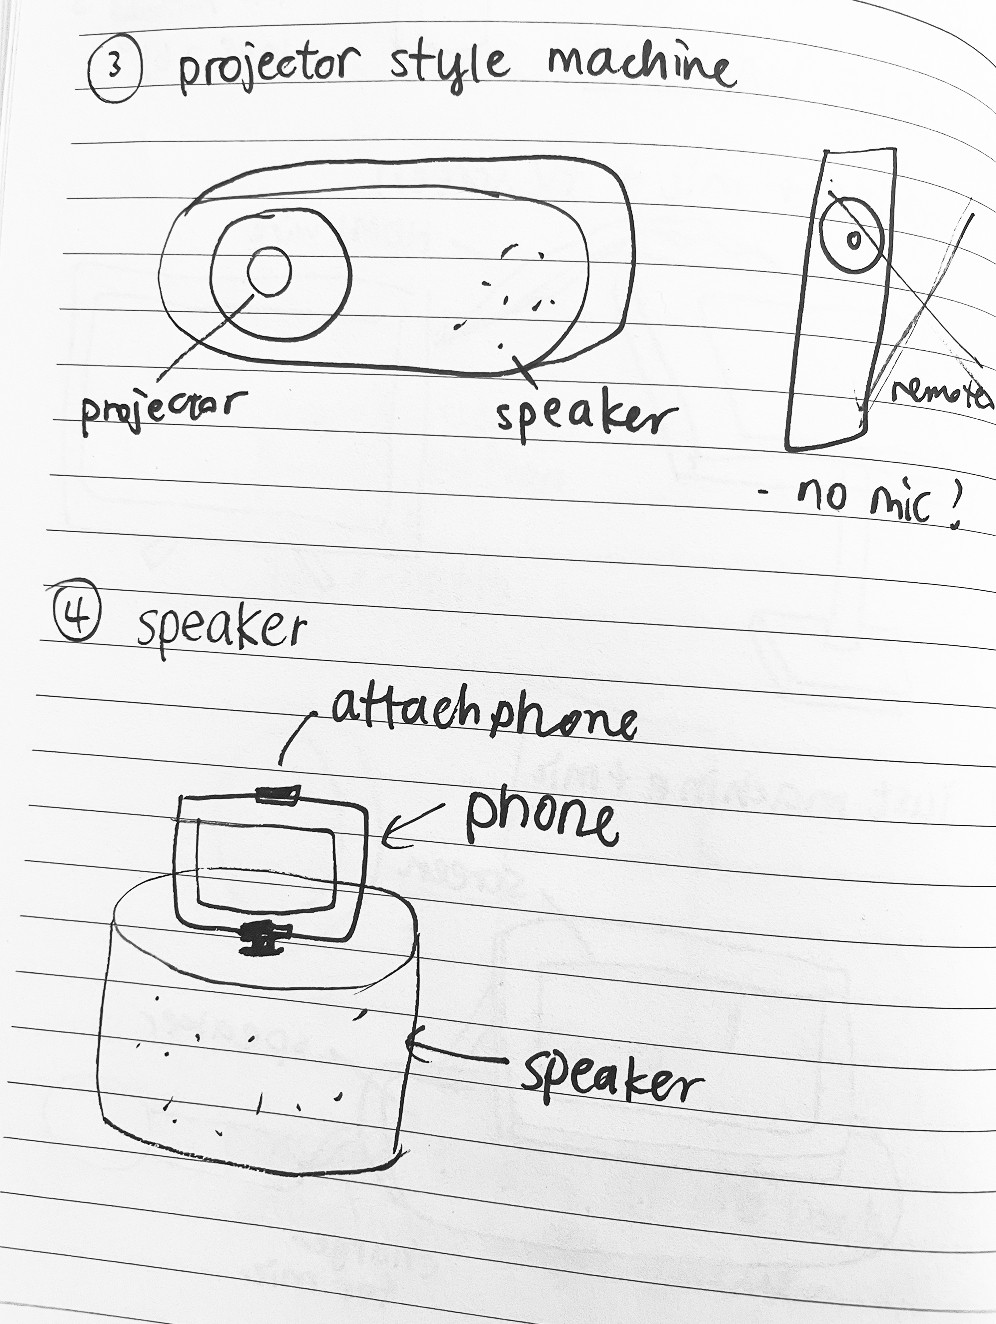 3 projector style machine
projector
speaker
remote
- no mic?
4 speaker
attach phone
phone
speaker